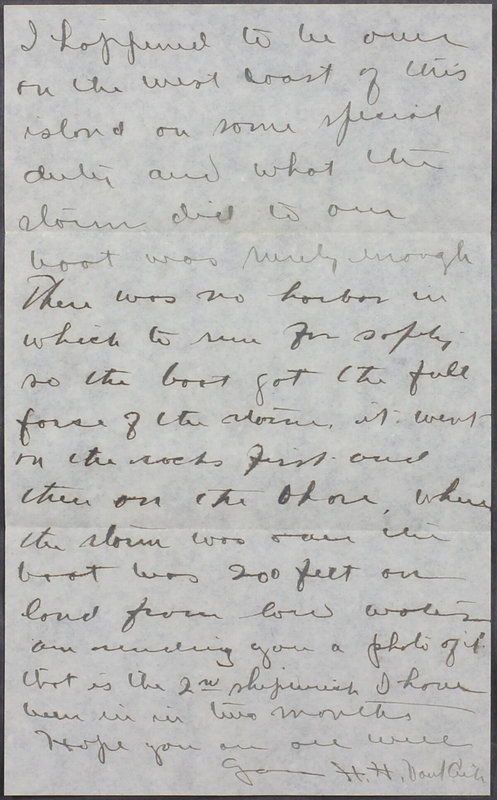 I happened to be over
on the west coast of this
island on some special
duty and what the
storm did to our
boat was surely enough
There was no harbor in
which to run for safety
so the boat got the full
forse of the storm. it went
on the rocks first and
then on the shore, when
the storm was over the
boat was 200 feet on
land from low water
am sending you a photo of it
that is the 2nd shipwreck I have
been in in two months
Hope you are all well
H. H.